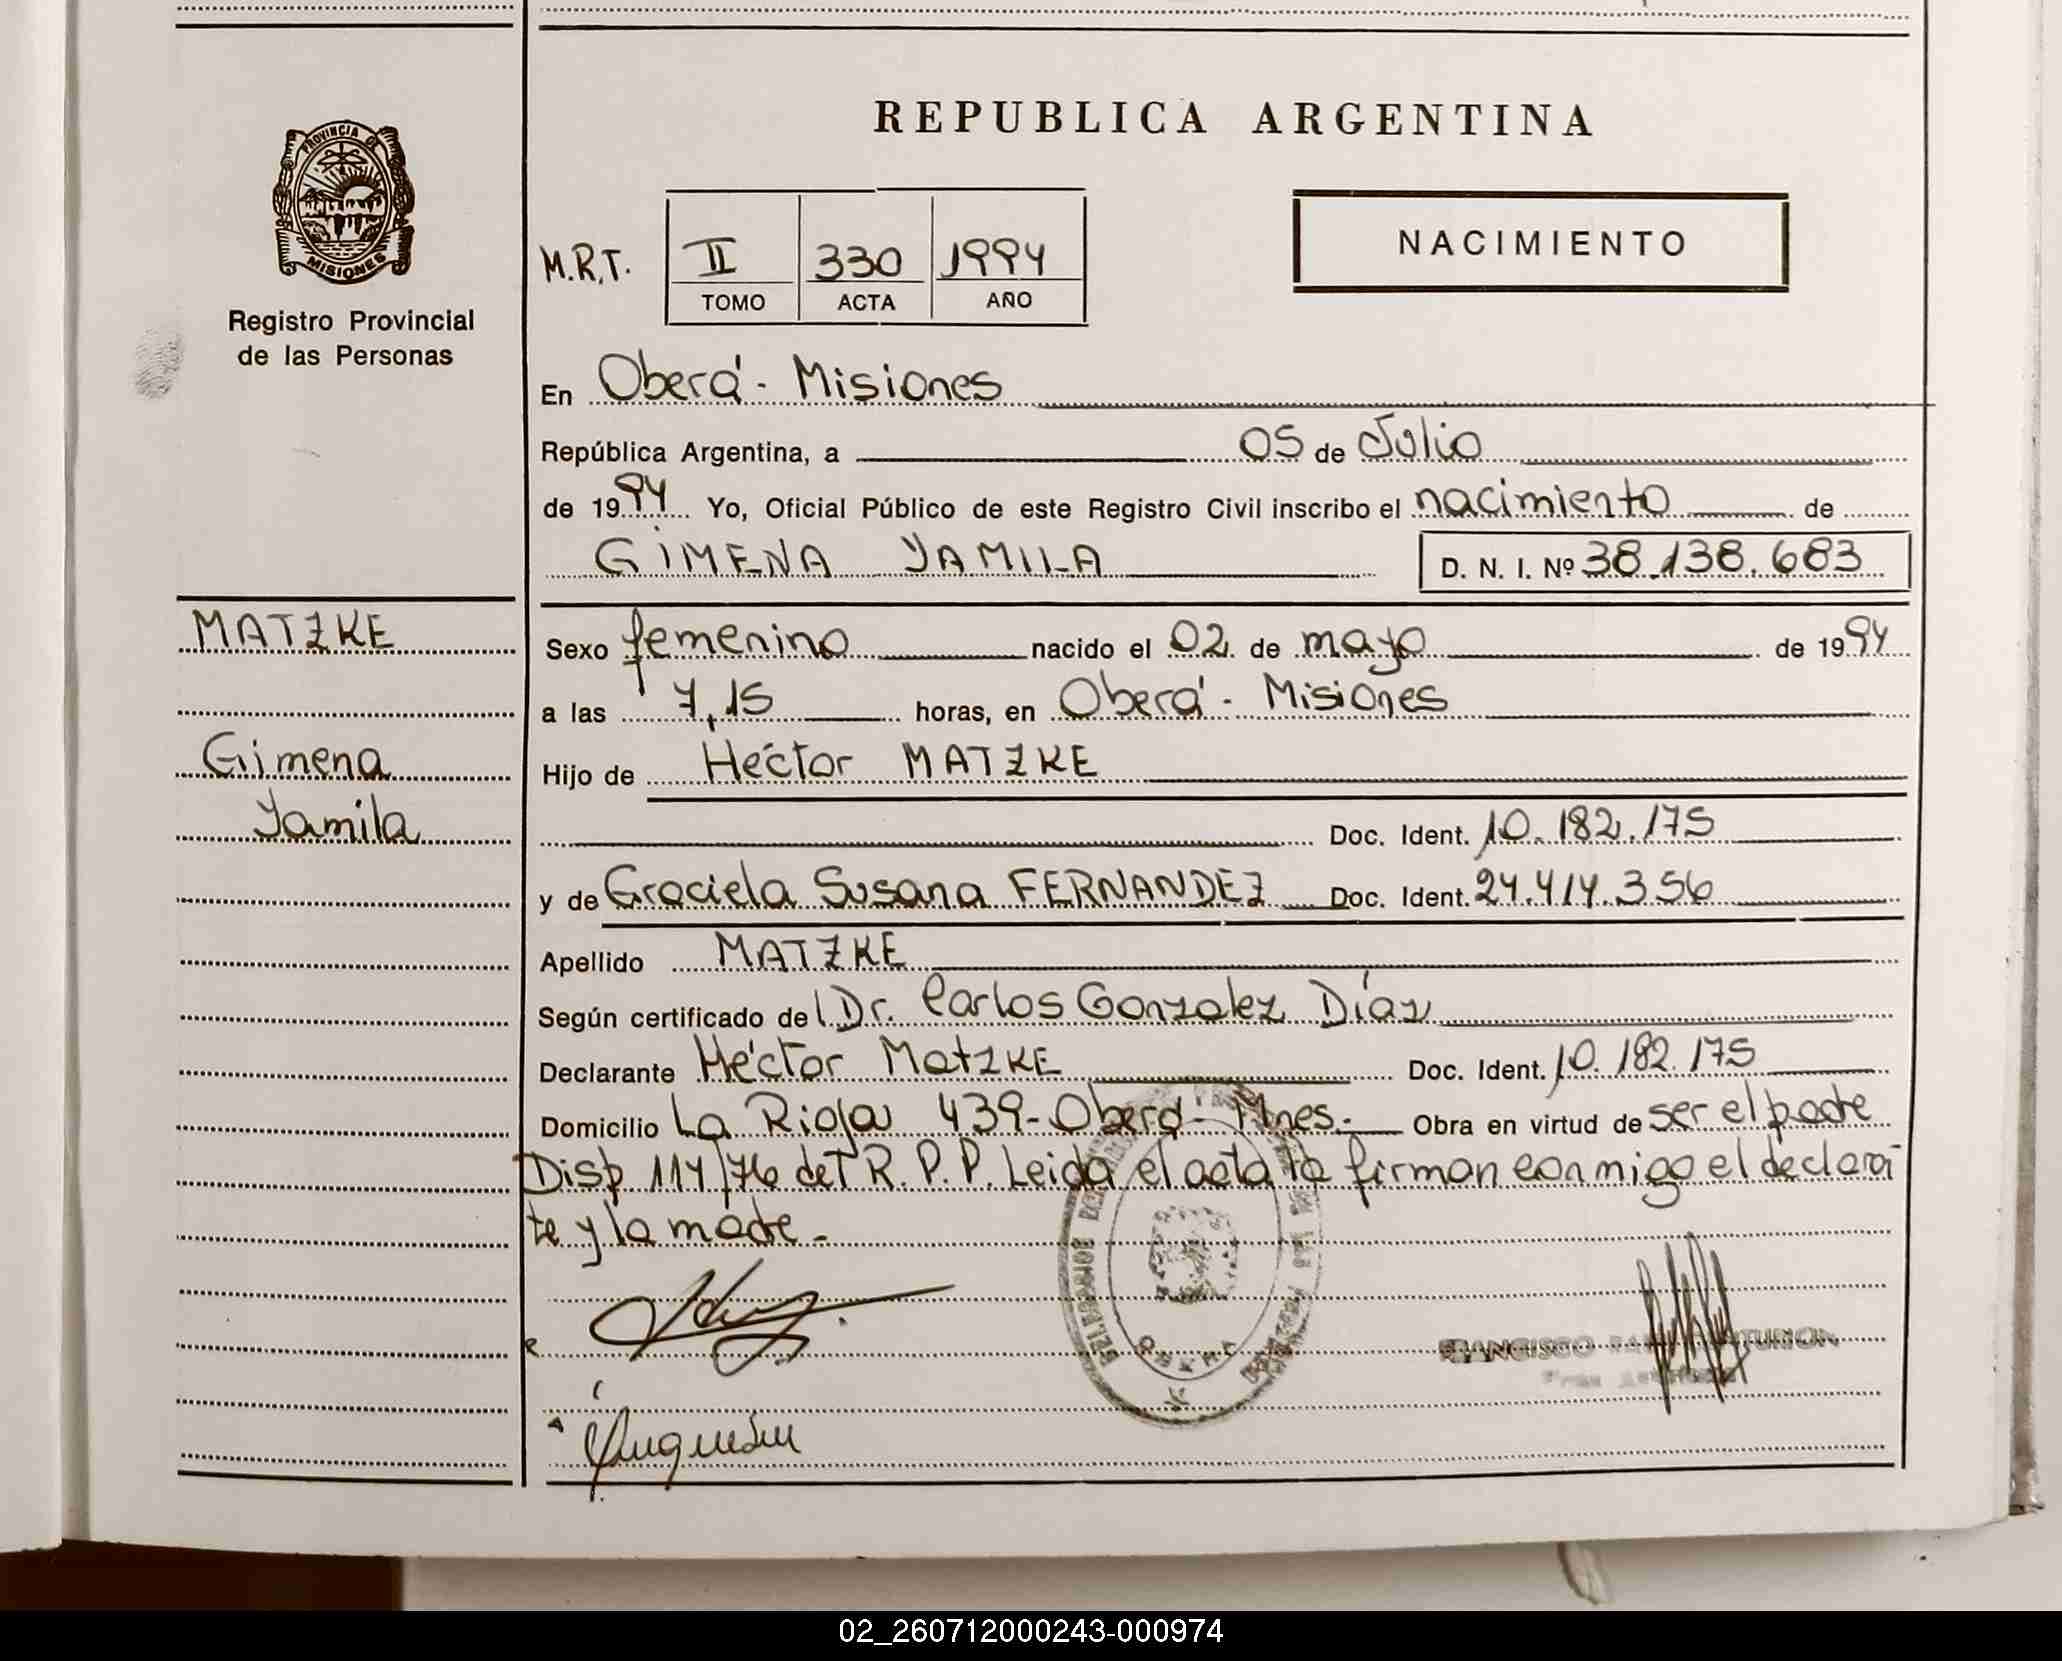 REPUBLICA ARGENTINA
PROVINCIA DE
MISIONES
Registro Provincial
de las Personas
M.R.T.
II 330 1994
TOMO ACTA AÑO
NACIMIENTO
En Oberá - Misiones
República Argentina, a 05 de Julio
de 1994 Yo, Oficial Público de este Registro Civil inscribo el nacimiento de
GIMENA YAMILA D. N. I. Nº 38.138.683
MATZKE
Gimena
Yamila
Sexo femenino nacido el 02 de mayo de 1994
a las 7,15 horas, en Oberá - Misiones
Hijo de Héctor MATZKE
Doc. Ident. 10.182.175
y de Graciela Susana FERNANDEZ Doc. Ident. 24.414.356
Apellido MATZKE
Según certificado del Dr. Carlos Gonzalez Díaz
Declarante Héctor MatzKE Doc. Ident. 10.182.175
Domicilio La Rioja 439 - Oberá - Mnes. - Obra en virtud de ser el padre
Disp 114/76 del R. P. P. Leida el acta la firman conmigo el declaran
te y la madre. -
FRANCISCO
OBERA
02_260712000243-000974